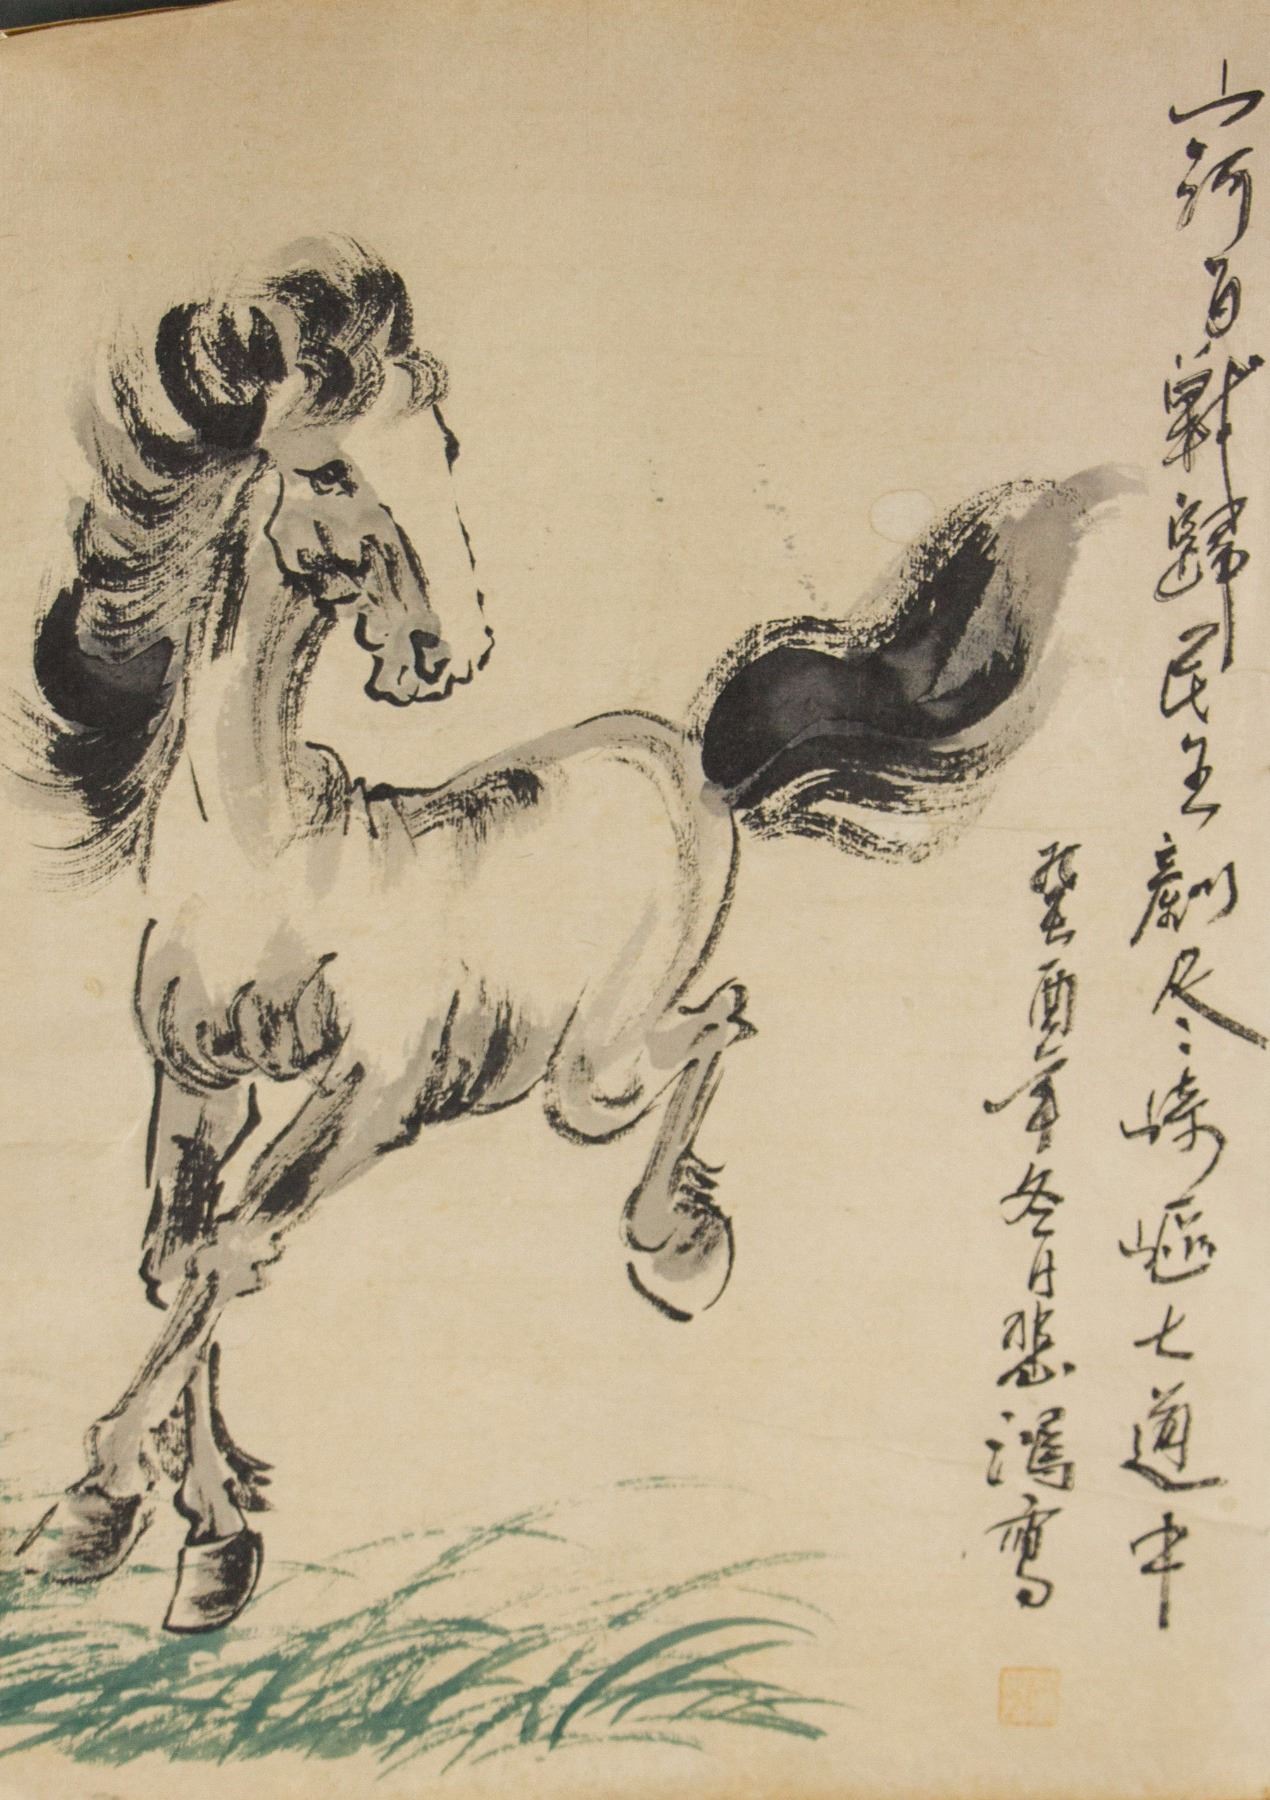 山河百戰歸民主剷尽崎嶇大道平
癸酉年冬月悲鴻寫